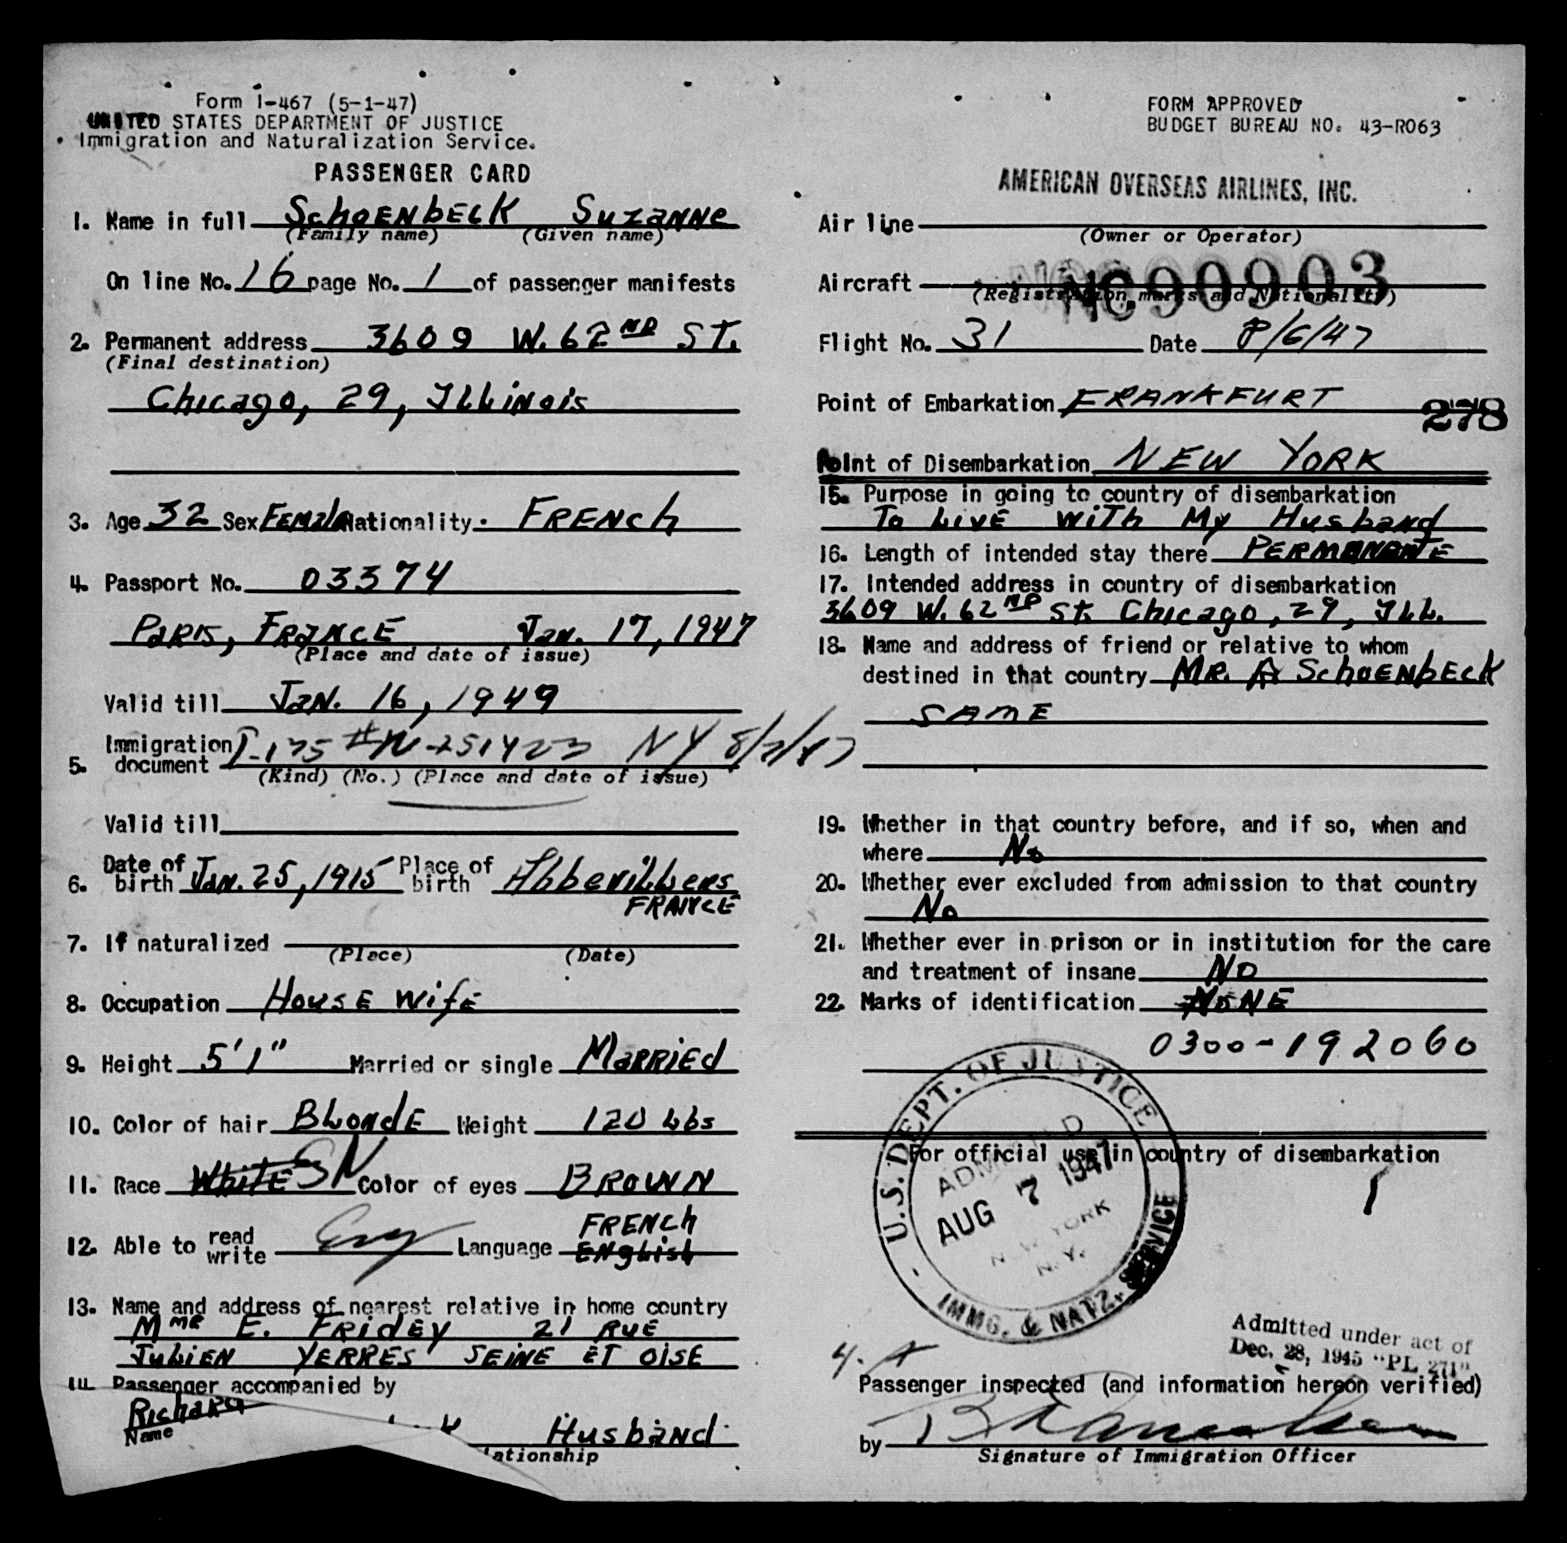 Form I-467 (5-1-47)
UNITED STATES DEPARTMENT OF JUSTICE
Immigration and Naturalization Service.
PASSENGER CARD
1. Name in full SchoENbECK SuzaNNe
(Family name) (Given name)
On line No. 16 page No. 1 of passenger manifests
2. Permanent address 3609 W. 62ND ST.
(Final destination)
Chicago, 29, ILLiNois
3. Age 32 Sex FEMale Nationality. FRENch
4. Passport No. 03374
PaRis, FRaNCE Jan. 17, 1947
(Place and date of issue)
Valid till JaN. 16, 1949
5. Immigration document I-175 # NY 8/7/47
(Kind) (No.) (Place and date of issue)
Valid till
6. Date of birth Jan. 25, 1915 Place of birth AbbeviLLers
FRANCE
7. If naturalized
(Place) (Date)
8. Occupation HousE WifE
9. Height 5'1" Married or single MaRRiEd
10. Color of hair BLondE Weight 120 Lbs
11. Race WhitE Color of eyes BROWN
12. Able to read write Language FRENCh
ENgLish
13. Name and address of nearest relative in home country
MME E. FRidEY 21 RUE
JuLiEN YERRES SEiNE ET OiSE
14. Passenger accompanied by
RichaRd Husband
Name lationship
FORM APPROVED
BUDGET BUREAU NO. 43-R063
AMERICAN OVERSEAS AIRLINES, INC.
Air line
(Owner or Operator)
Aircraft NC90903
(Registration marks and Nationality)
Flight No. 31 Date 8/6/47
Point of Embarkation FRANKFURT
278
Point of Disembarkation NEW YORK
15. Purpose in going to country of disembarkation
To LiVE WiTh My Husband
16. Length of intended stay there PERMANANTE
17. Intended address in country of disembarkation
3609 W. 62ND ST. Chicago, 29, ILL.
18. Name and address of friend or relative to whom
destined in that country MR. A SchoENbEcK
SAME
19. Whether in that country before, and if so, when and
where No
20. Whether ever excluded from admission to that country
No
21. Whether ever in prison or in institution for the care
and treatment of insane NO
22. Marks of identification NoNE
0300-192060
For official use in country of disembarkation
U.S. DEPT. OF JUSTICE
ADMITTED
AUG 7 1947
NEW YORK
N.Y.
IMMG. & NATZ. SERVICE
Admitted under act of
Dec. 28, 1945 "PL 271"
Passenger inspected (and information hereon verified)
by
Signature of Immigration Officer